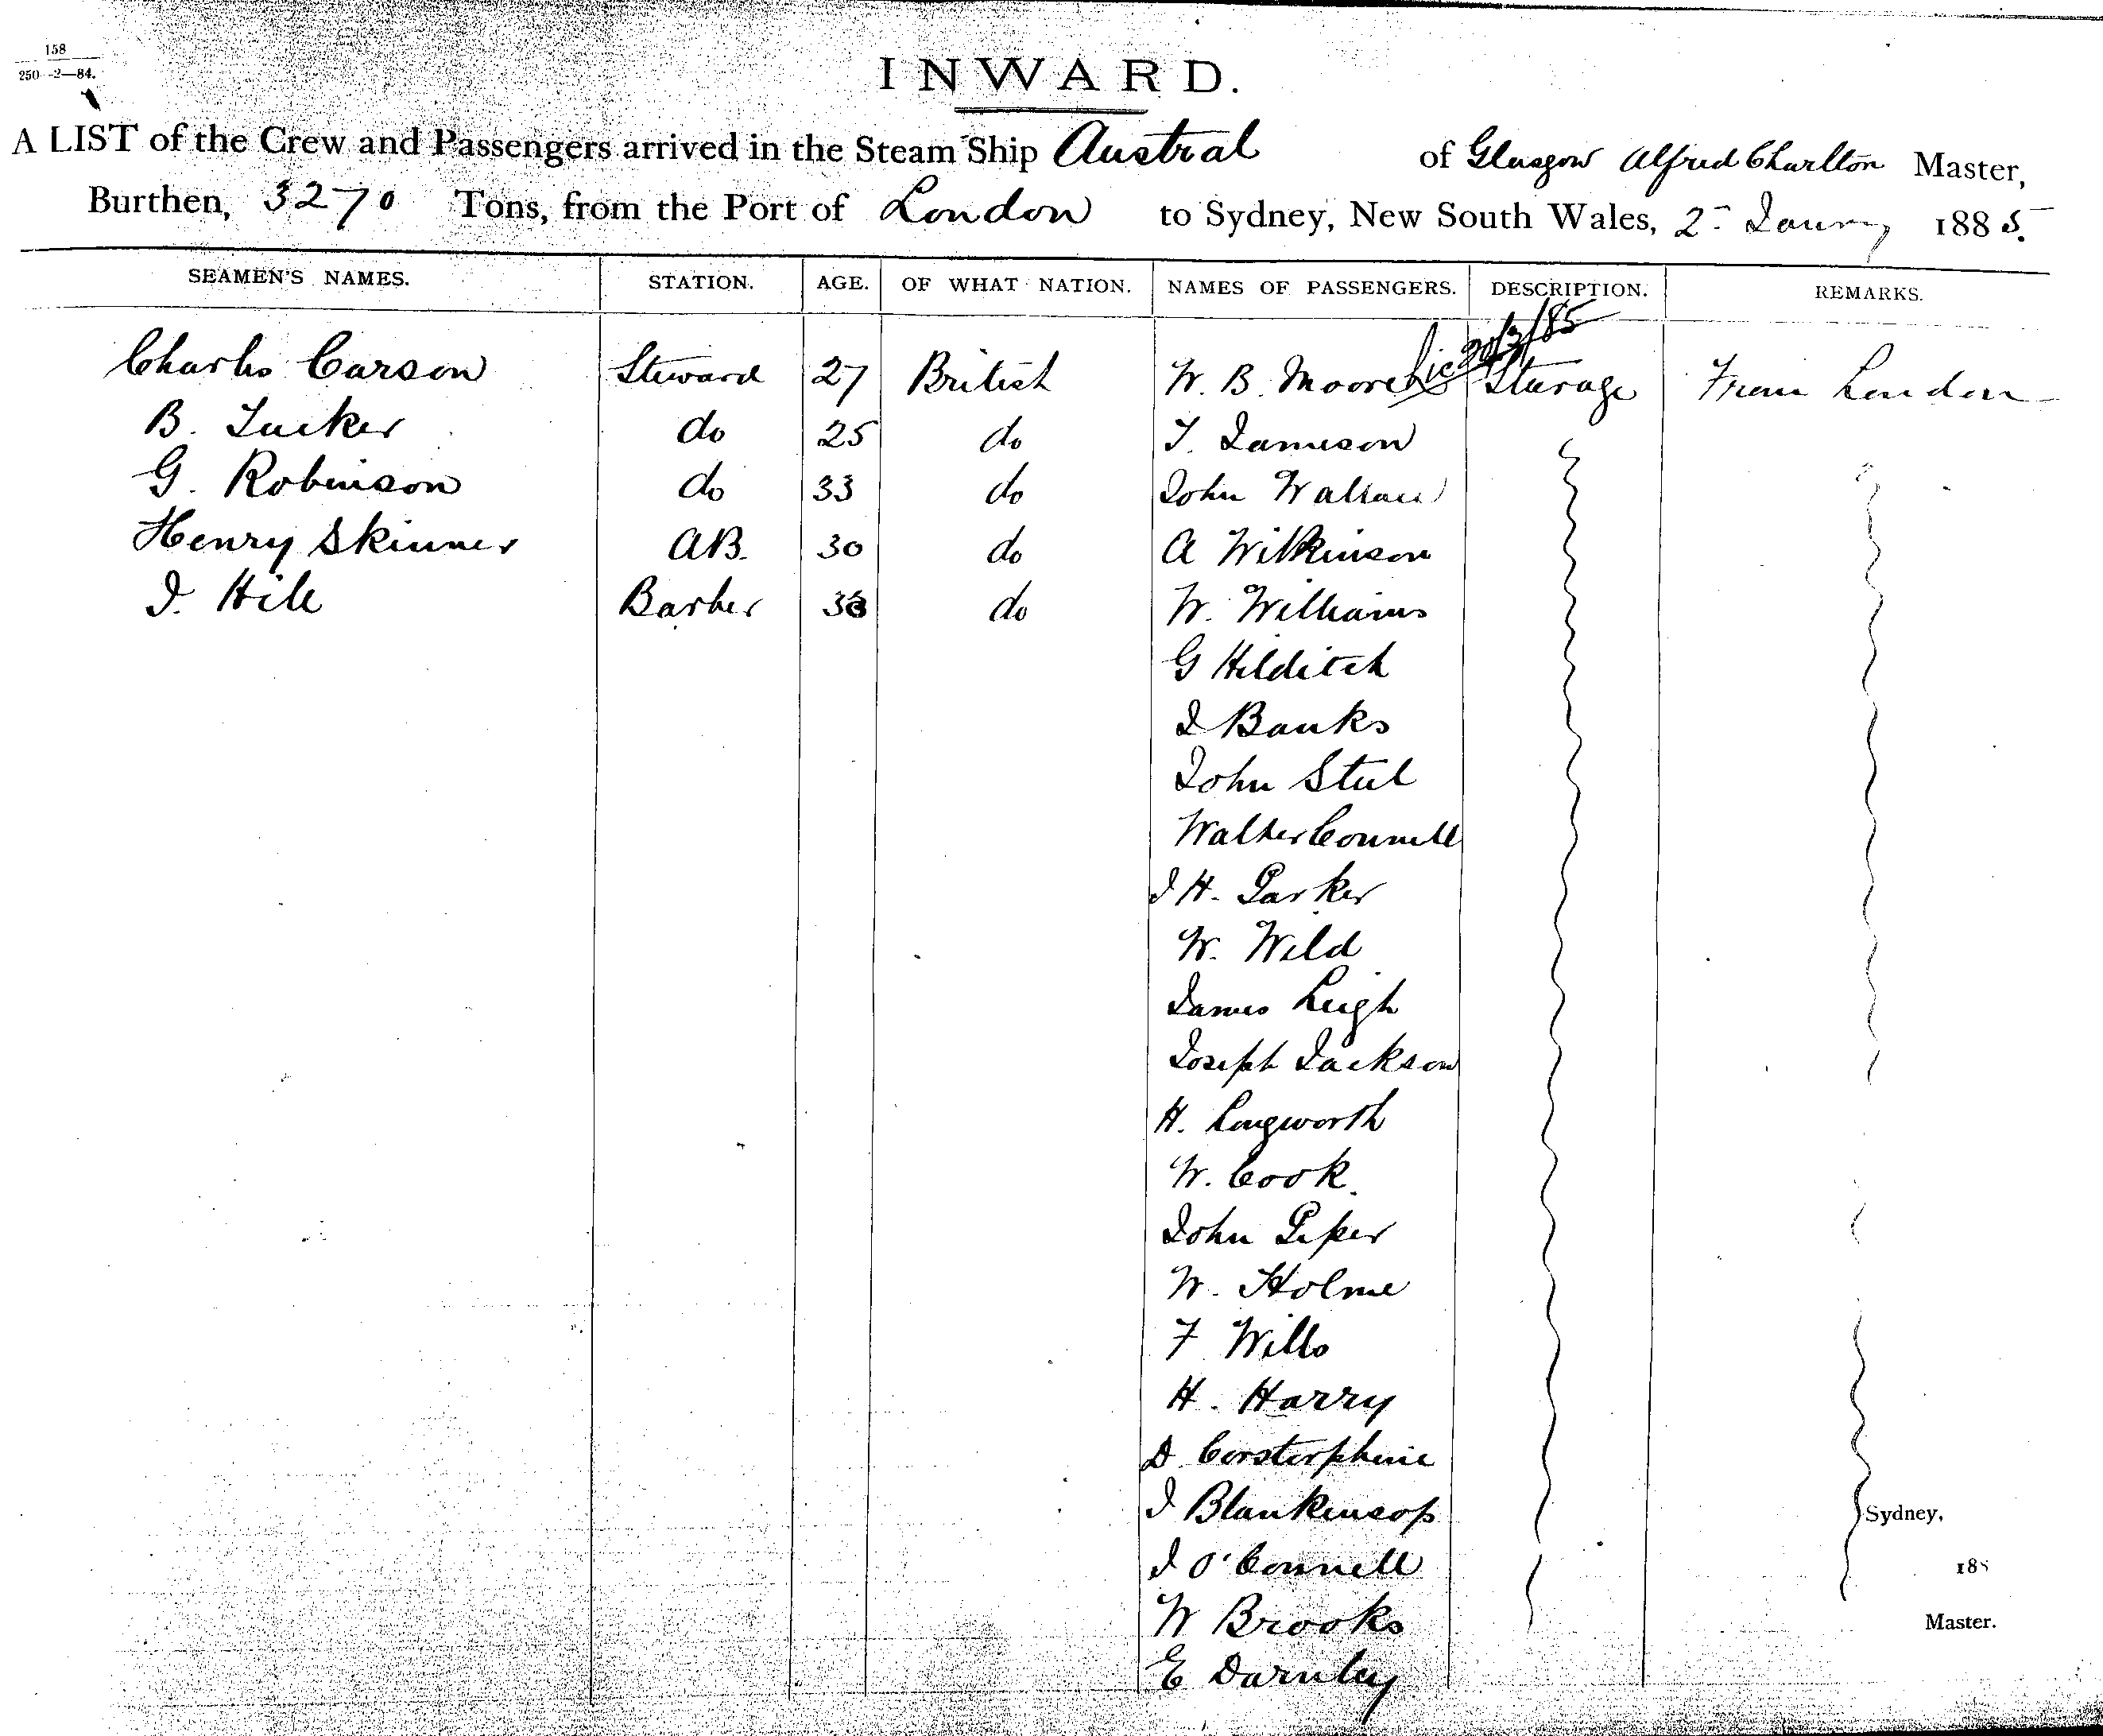 158
250—2—84.
INWARD.
A LIST of the Crew and Passengers arrived in the Steam Ship Austral of Glasgow Alfred Charlton Master,
Burthen, 3270 Tons, from the Port of London to Sydney, New South Wales, 2 - January 1885.
SEAMEN'S NAMES. STATION. AGE. OF WHAT NATION. NAMES OF PASSENGERS. DESCRIPTION. REMARKS.
20/3/85
Charles Carson Steward 27 British W. B. Moore Steerage From London
B. Tucker do 25 do T. Jameson
G. Robinson do 33 do John Wallace
Henry Skinner AB. 30 do A Wilkinson
J. Hill Barber do W. Williams
G Hilditch
J Banks
John Steel
Walter Connell
J H. Parker
W. Wild
James Leigh
Joseph Jackson
H. Longworth
W. Cook.
John Piper
W. Holme
F Wills
H. Harry
D. Corstorphine
J Blankensop Sydney,
J O'Connell 188
W Brooks Master.
E Darnley